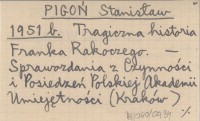 PIGOŃ Stanisław
1951 b. Tragiczna historia
Franka Rakoczego. —
Sprawozdania z Czynności
i Posiedzeń Polskiej Akademii
Umiejętności (Kraków)
%